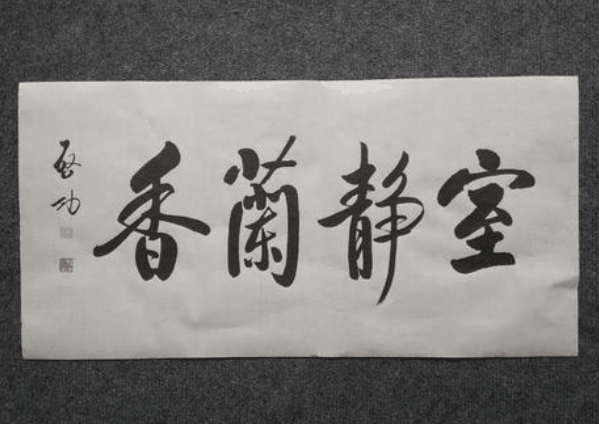 室静蘭香
启功